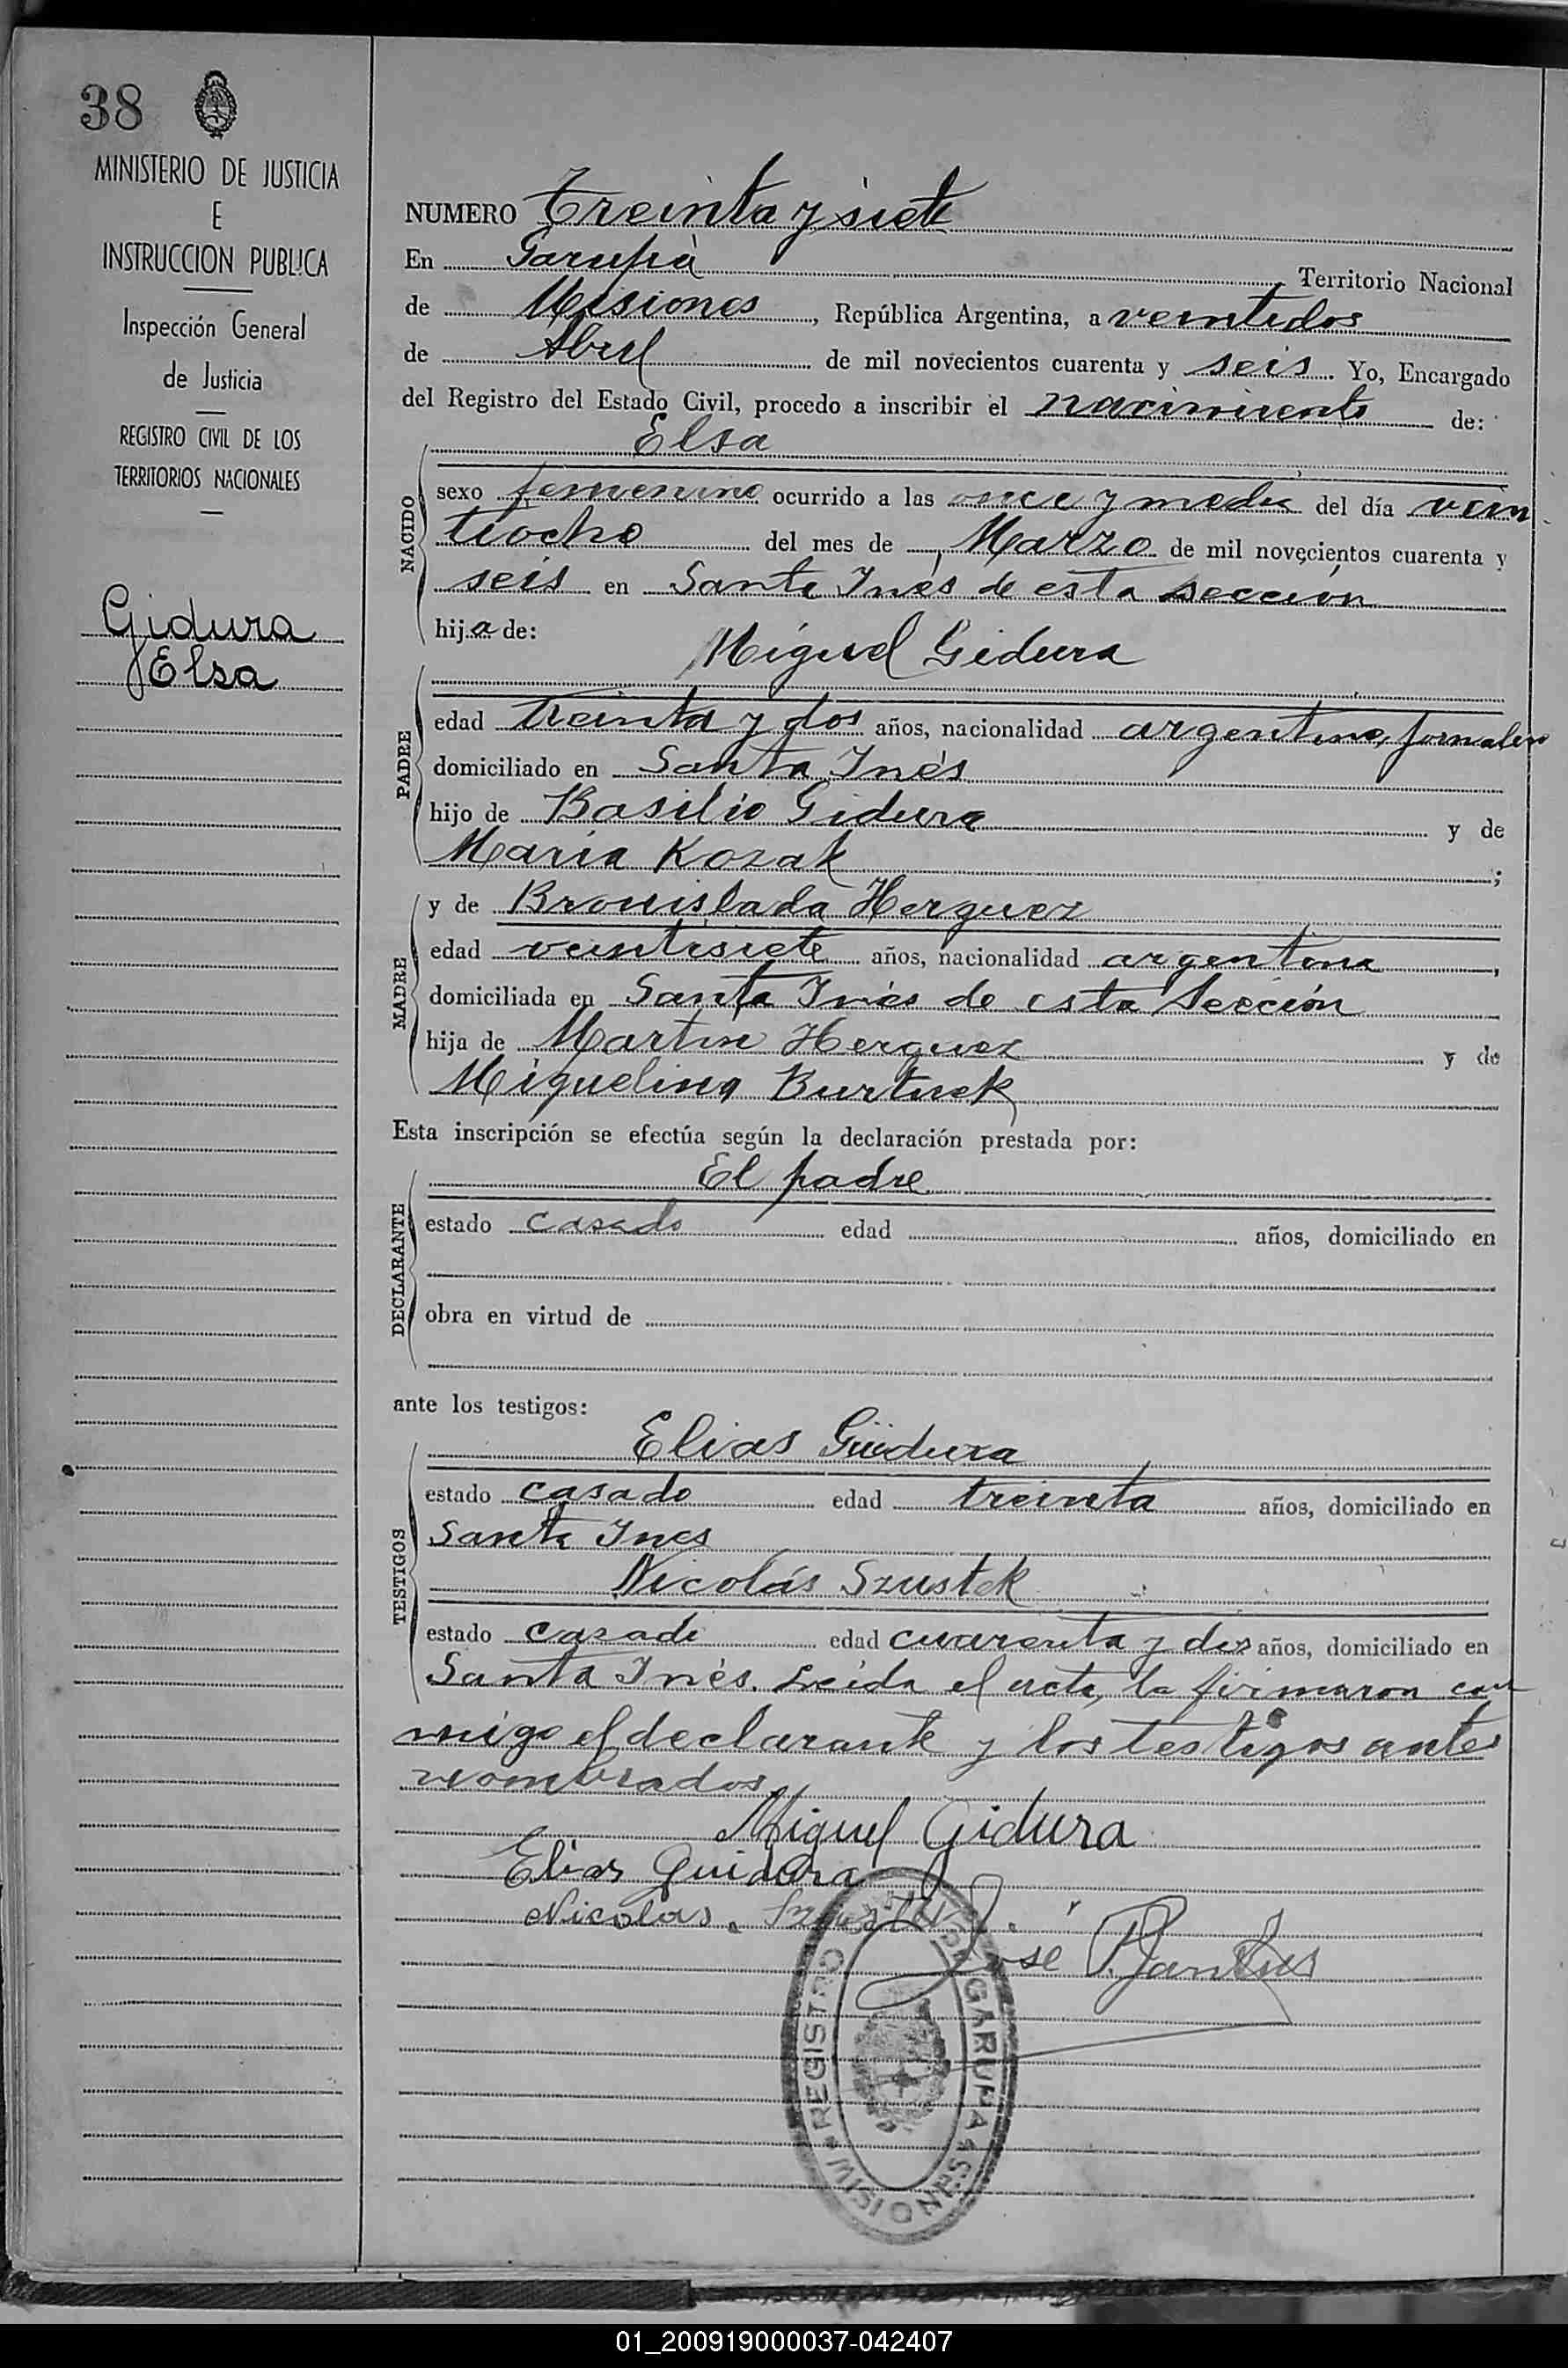 38
MINISTERIO DE JUSTICIA
E
INSTRUCCION PUBLICA
Inspección General
de Justicia
REGISTRO CIVIL DE LOS
TERRITORIOS NACIONALES
Gidura
Elsa
NUMERO Treinta y siete
En Garupá Territorio Nacional
de Misiones, República Argentina, a veintidos
de Abril de mil novecientos cuarenta y seis. Yo, Encargado
del Registro del Estado Civil, procedo a inscribir el nacimiento de:
Elsa
NACIDO
sexo femenino ocurrido a las once y media del día vein
tiocho del mes de Marzo de mil novecientos cuarenta y
seis en Santa Inés de esta sección
hija de:
Miguel Gidura
PADRE
edad treinta y dos años, nacionalidad argentino, jornalero
domiciliado en Santa Inés
hijo de Basilio Gidura y de
María Kozak;
MADRE
y de Bronislada Herguez
edad veintisiete años, nacionalidad argentina,
domiciliada en Santa Inés de esta Sección
hija de Martin Herguez y de
Miguelina Burtnek
Esta inscripción se efectúa según la declaración prestada por:
El padre
DECLARANTE
estado casado edad años, domiciliado en
obra en virtud de
ante los testigos:
Elias Guidura
TESTIGOS
estado casado edad treinta años, domiciliado en
Santa Ines
Nicolás Szustek
estado casado edad cuarenta y dos años, domiciliado en
Santa Inés. Leída el acta, la firmaron con
migo el declarante y los testigos antes
nombrados
Miguel Gidura
Elias Guidura
Nicolas
José
REGISTRO GARUPA MISIONES
01_200919000037-042407